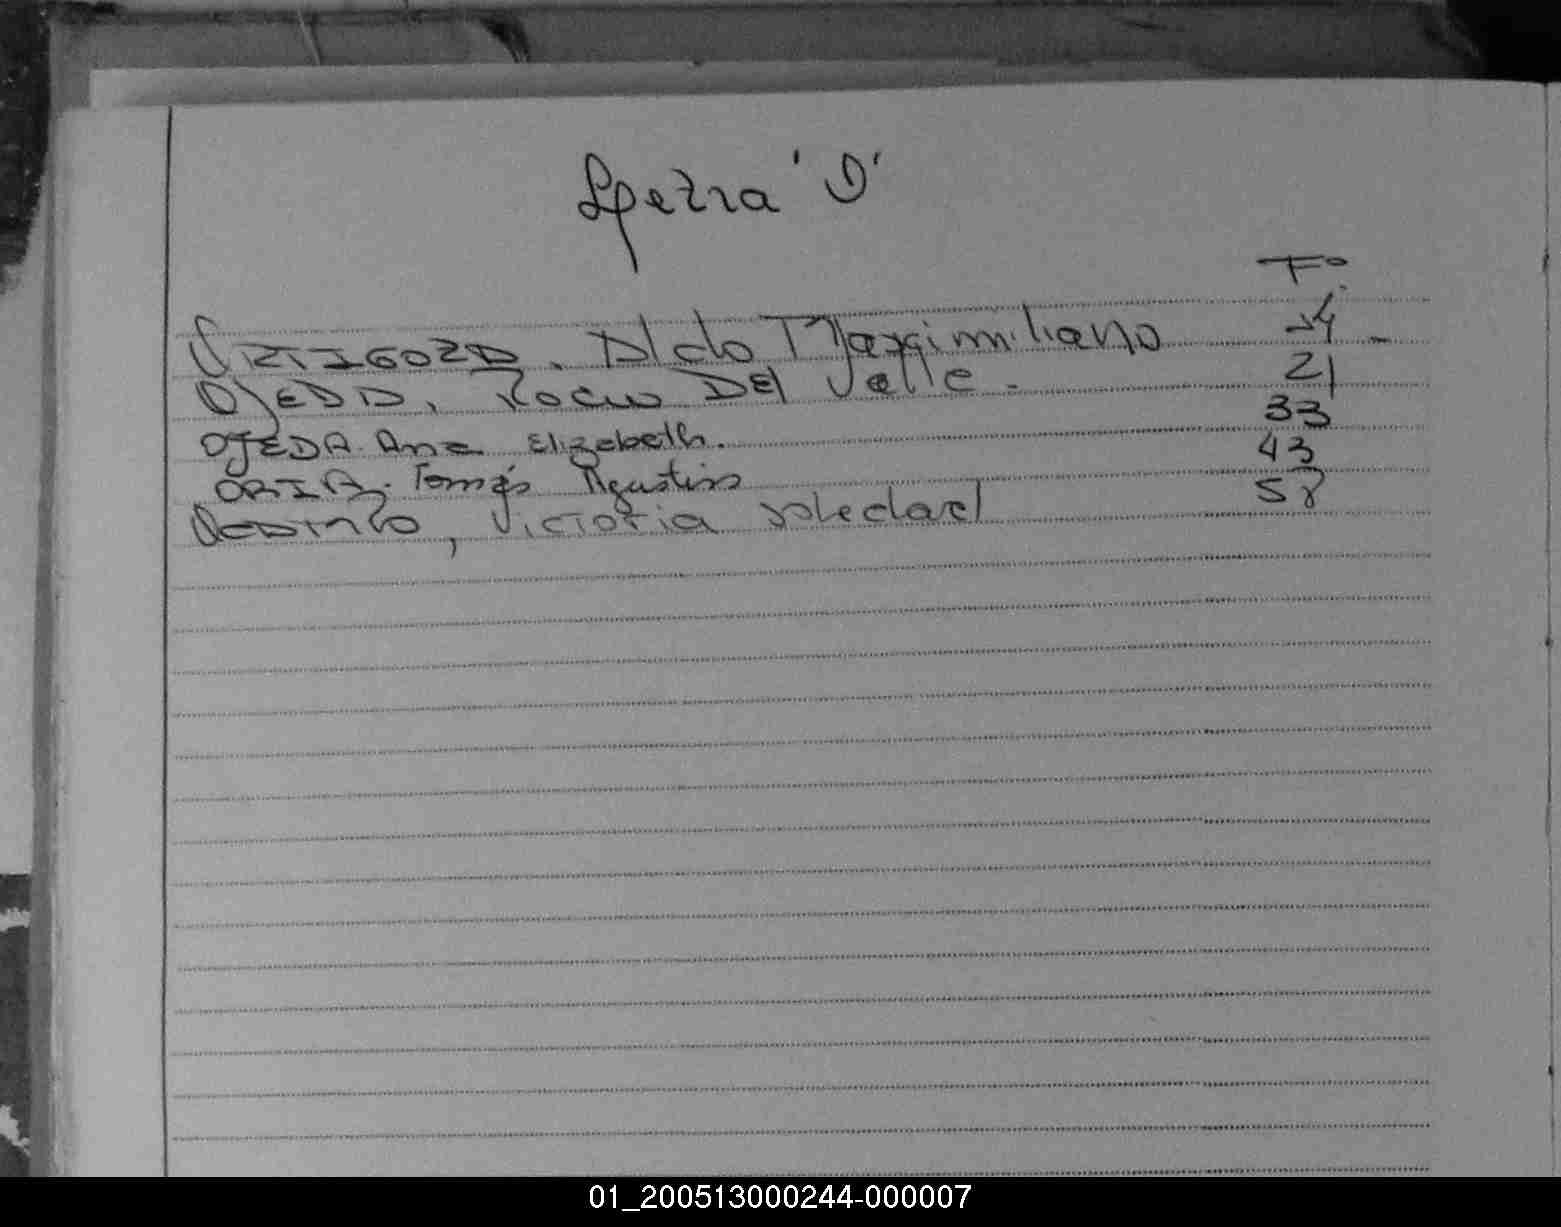 Letra "O"
Fº
ORTIGOZA. Aldo Maximiliano 14 -
OJEDA, Rocio DEl Valle. 21
OJEDA. Ana Elizabeth. 33
ORIA. Tomás Agustin 43
Victoria Soledad 58
01_200513000244-000007